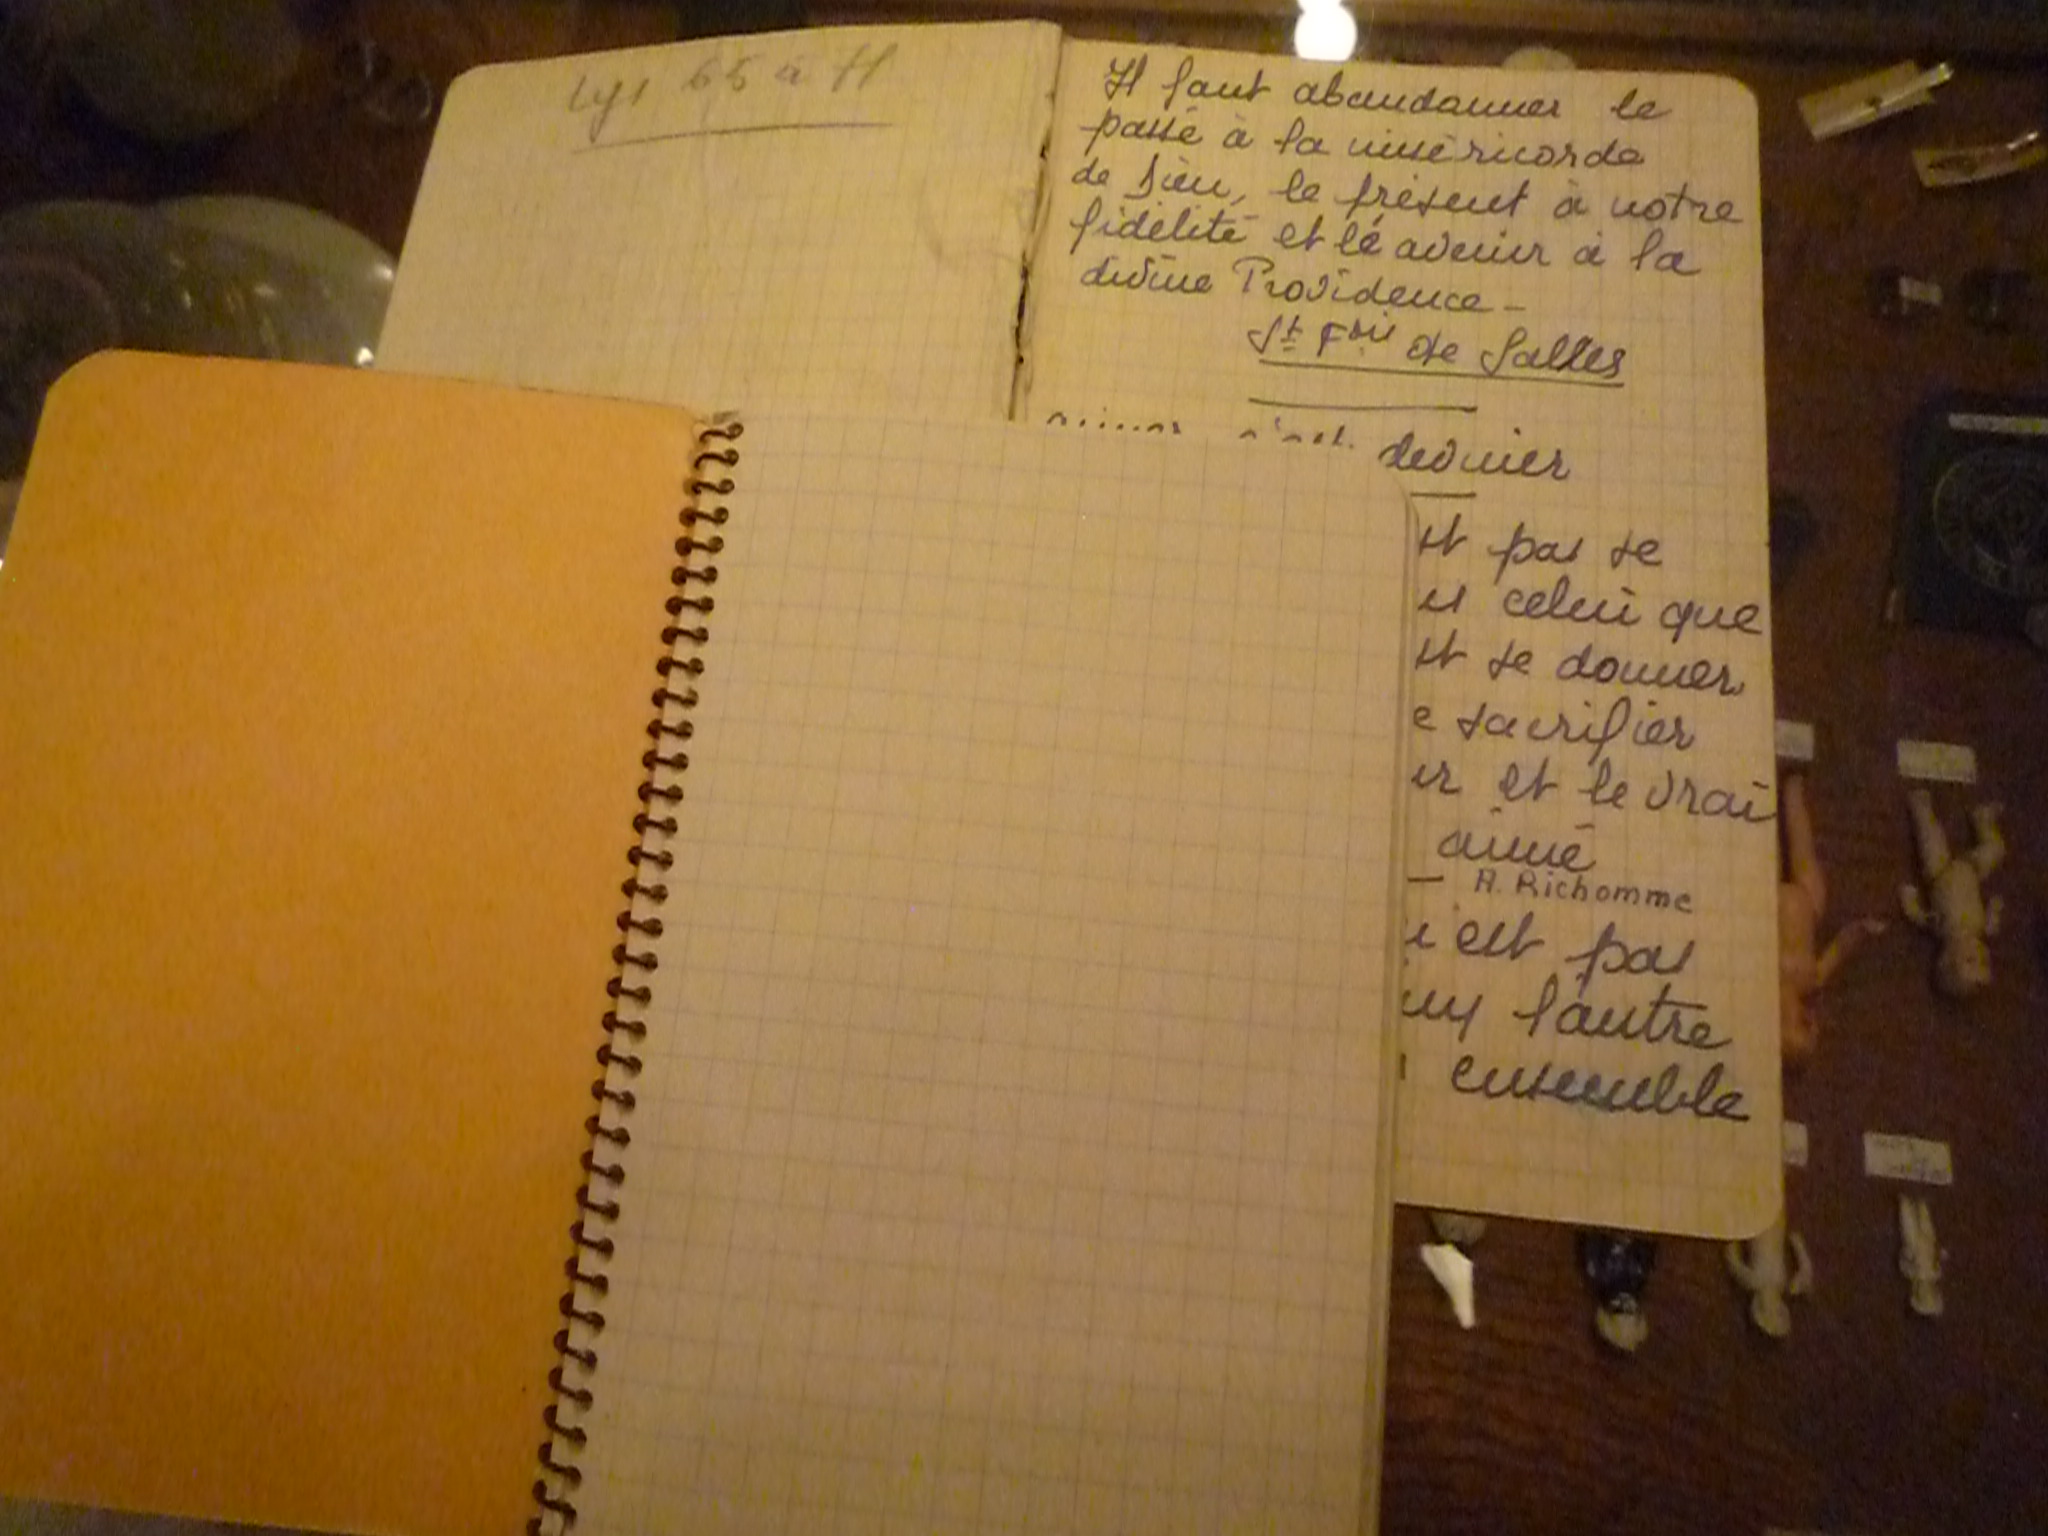 65 à 71
Il faut abandonner le
passé à la miséricorde
de Dieu, le présent à notre
fidélité et l'avenir à la
divine Providence -
St Fois de Salles
devnier
pas se
celui que
se donner
sacrifier
et le vrai
aimé
A. Richomme
est pas
l'autre
ensemble